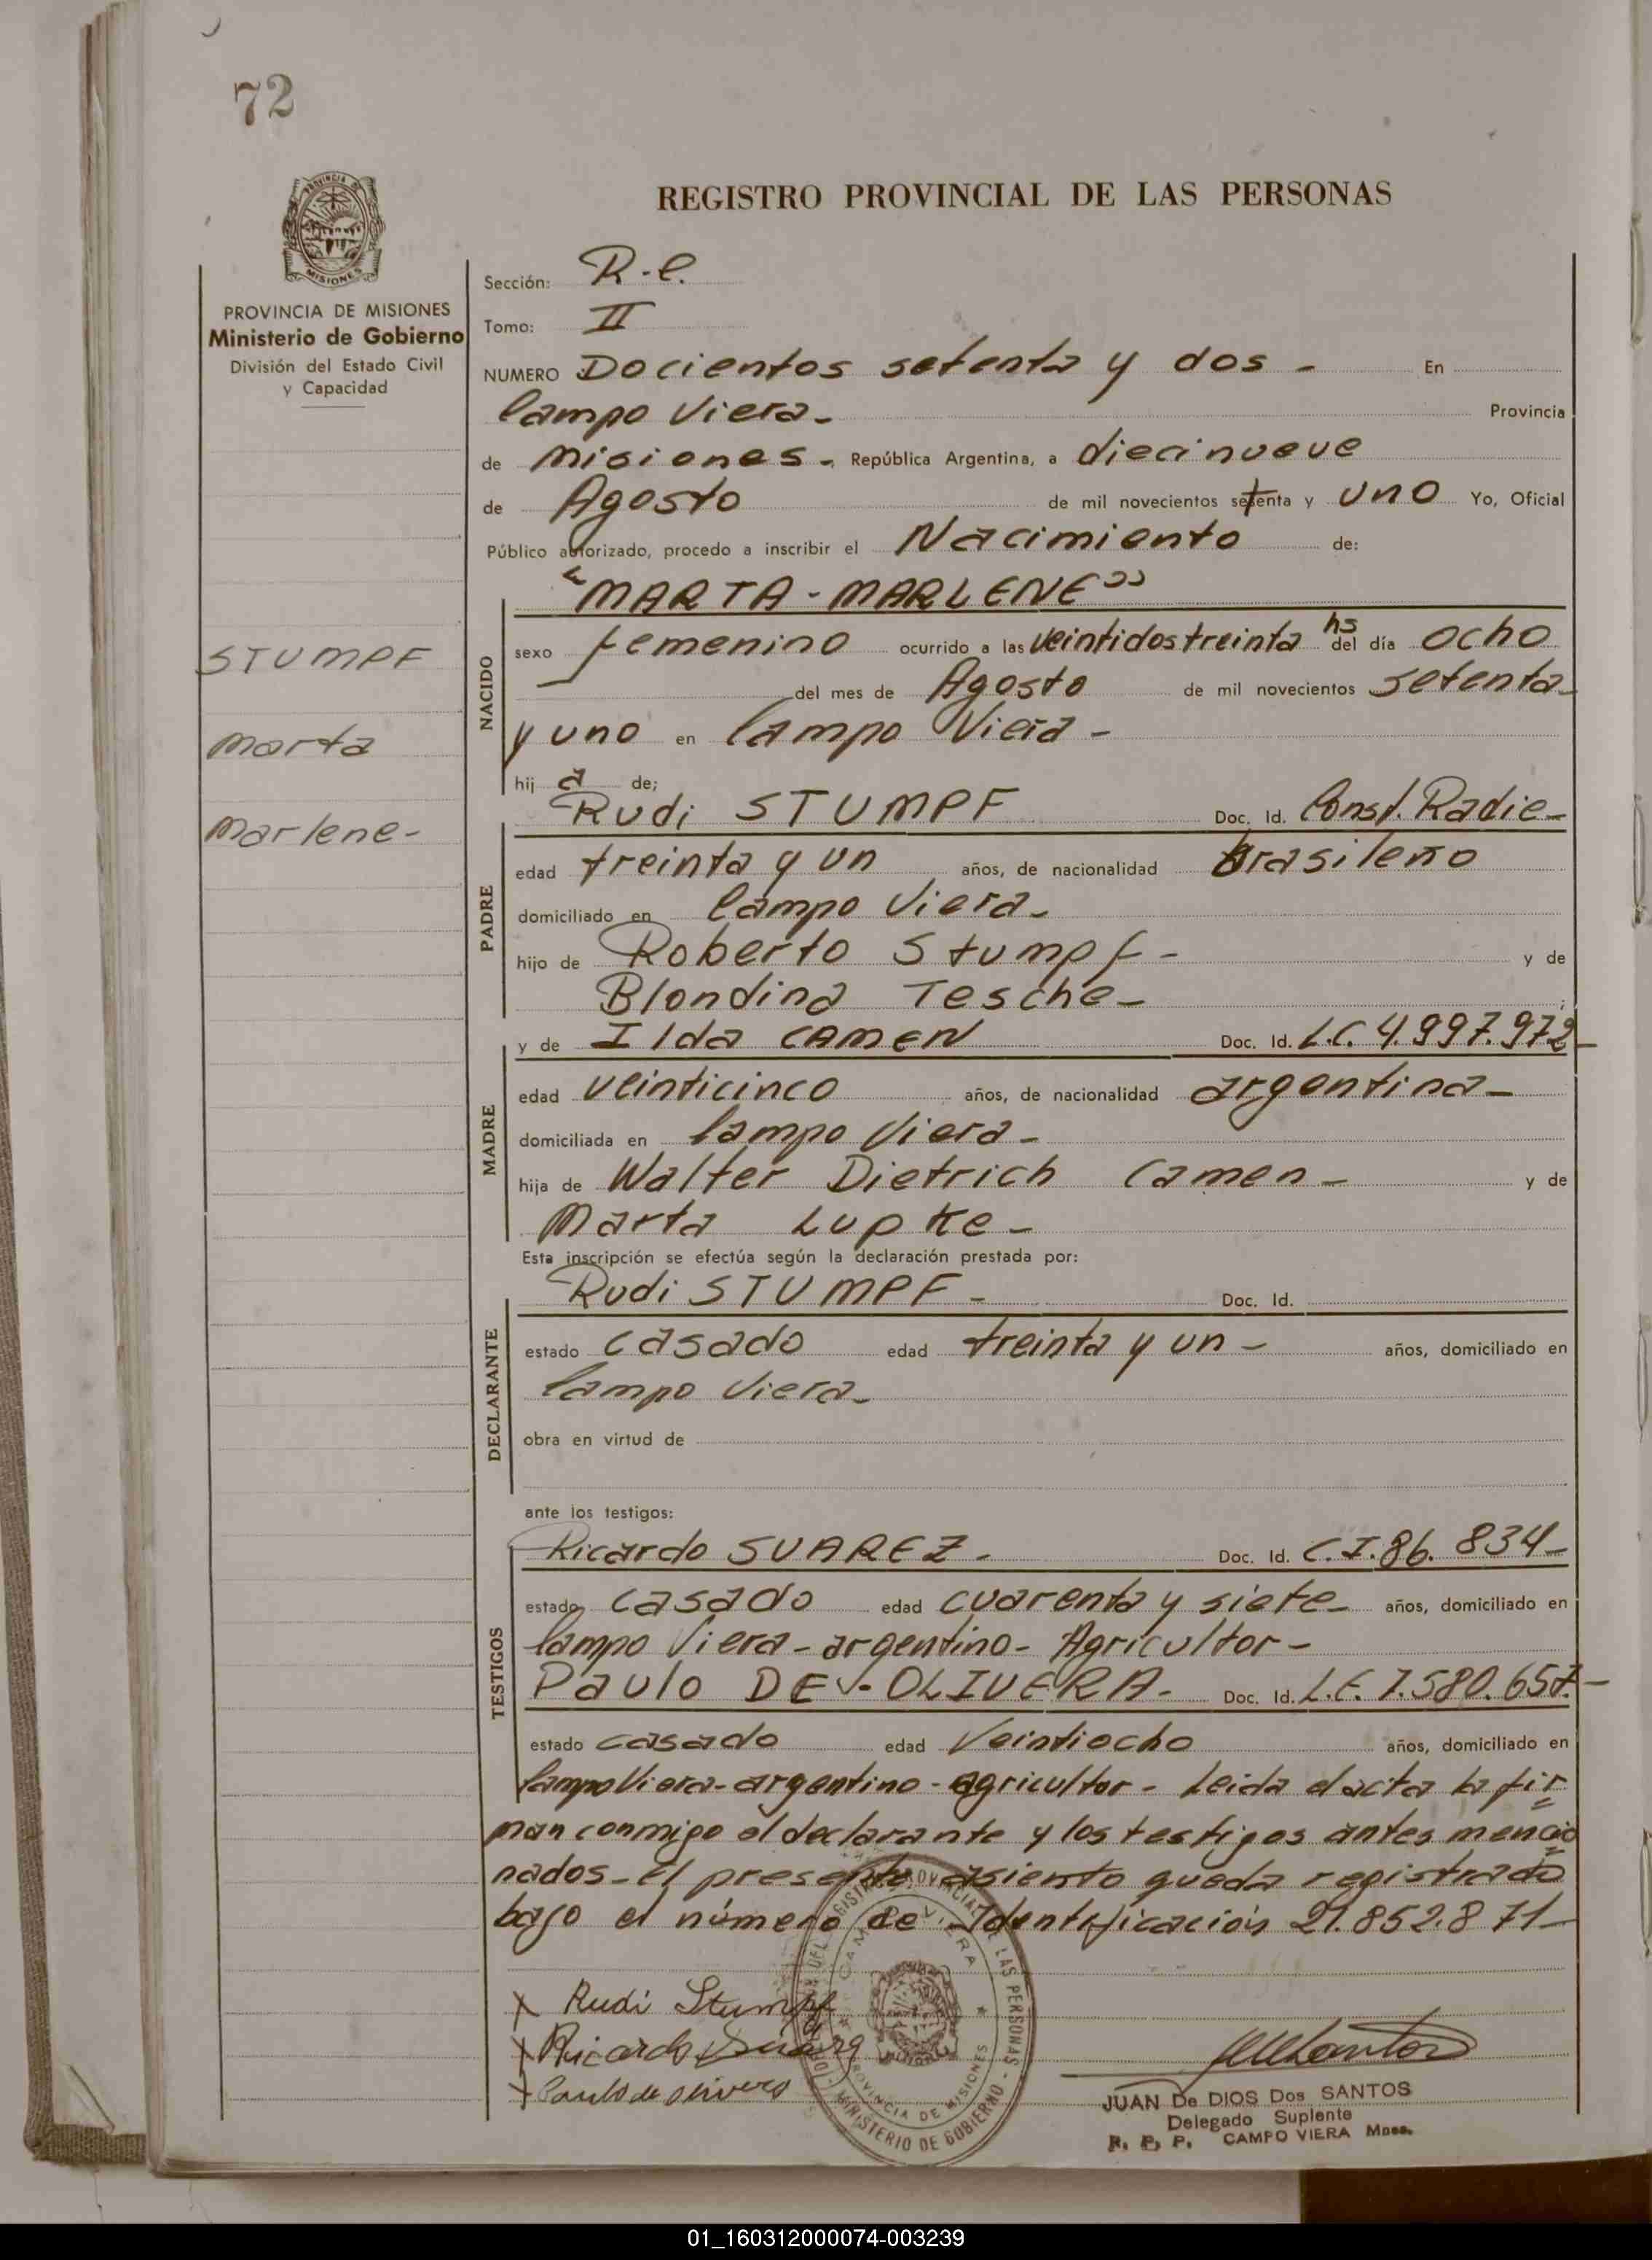 72
REGISTRO PROVINCIAL DE LAS PERSONAS
PROVINCIA DE
MISIONES
PROVINCIA DE MISIONES
Ministerio de Gobierno
División del Estado Civil
y Capacidad
Sección: R.C.
Tomo: II
NUMERO Docientos setenta y dos - En
Campo Viera - Provincia
de Misiones - República Argentina, a diecinueve
de Agosto de mil novecientos setenta y uno Yo, Oficial
Público autorizado, procedo a inscribir el Nacimiento de:
"MARTA - MARLENE"
STUMPF
Marta
Marlene -
NACIDO
sexo femenino ocurrido a las veintidos treinta hs del día ocho
del mes de Agosto de mil novecientos setenta
y uno en Campo Viera -
hij a de;
Rudi STUMPF Doc. Id. Const. Radic -
PADRE
edad treinta y un años, de nacionalidad brasileño
domiciliado en Campo Viera -
hijo de Roberto Stumpf - y de
Blondina Tesche - ;
y de Ilda CAMEN Doc. Id. L.C. 4.997.972 -
MADRE
edad veinticinco años, de nacionalidad argentina -
domiciliada en Campo Viera -
hija de Walter Dietrich Camen - y de
Marta Lupke -
Esta inscripción se efectúa según la declaración prestada por:
Rudi STUMPF - Doc. Id.
DECLARANTE
estado casado edad treinta y un - años, domiciliado en
Campo Viera -
obra en virtud de
ante los testigos:
Ricardo SUAREZ - Doc. Id. C.I. 86.834 -
TESTIGOS
estado casado edad cuarenta y siete - años, domiciliado en
Campo Viera - argentino - Agricultor -
Paulo DE - OLIVERA - Doc. Id. L.E. 7.580.657 -
estado casado edad Veintiocho años, domiciliado en
Campo Viera - argentino - agricultor - Leida el acta la fir=
man conmigo el declarante y los testigos antes mencio=
nados - El presente asiento queda registrado
bajo el número de Identificación 21.852.871 -
x Rudi Stumpf
x Ricardo Suarez
x Paulo de olivera
REGISTRO PROVINCIAL DE LAS PERSONAS
CAMPO VIERA
PROVINCIA DE MISIONES
MINISTERIO DE GOBIERNO
JUAN De DIOS Dos SANTOS
Delegado Suplente
R. P. P. CAMPO VIERA Mnes.
01_160312000074-003239